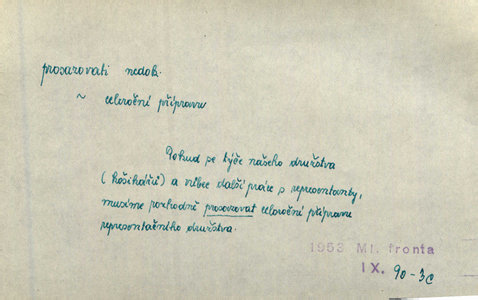 prosazovati nedok.
~ celoroční přípravu
Pokud se týče našeho družstva
(košíkářů) a vůbec další práce s representanty,
musíme rozhodně prosazovat celoroční přípravu
representačního družstva.
1953 Ml. fronta
IX. 90-3c